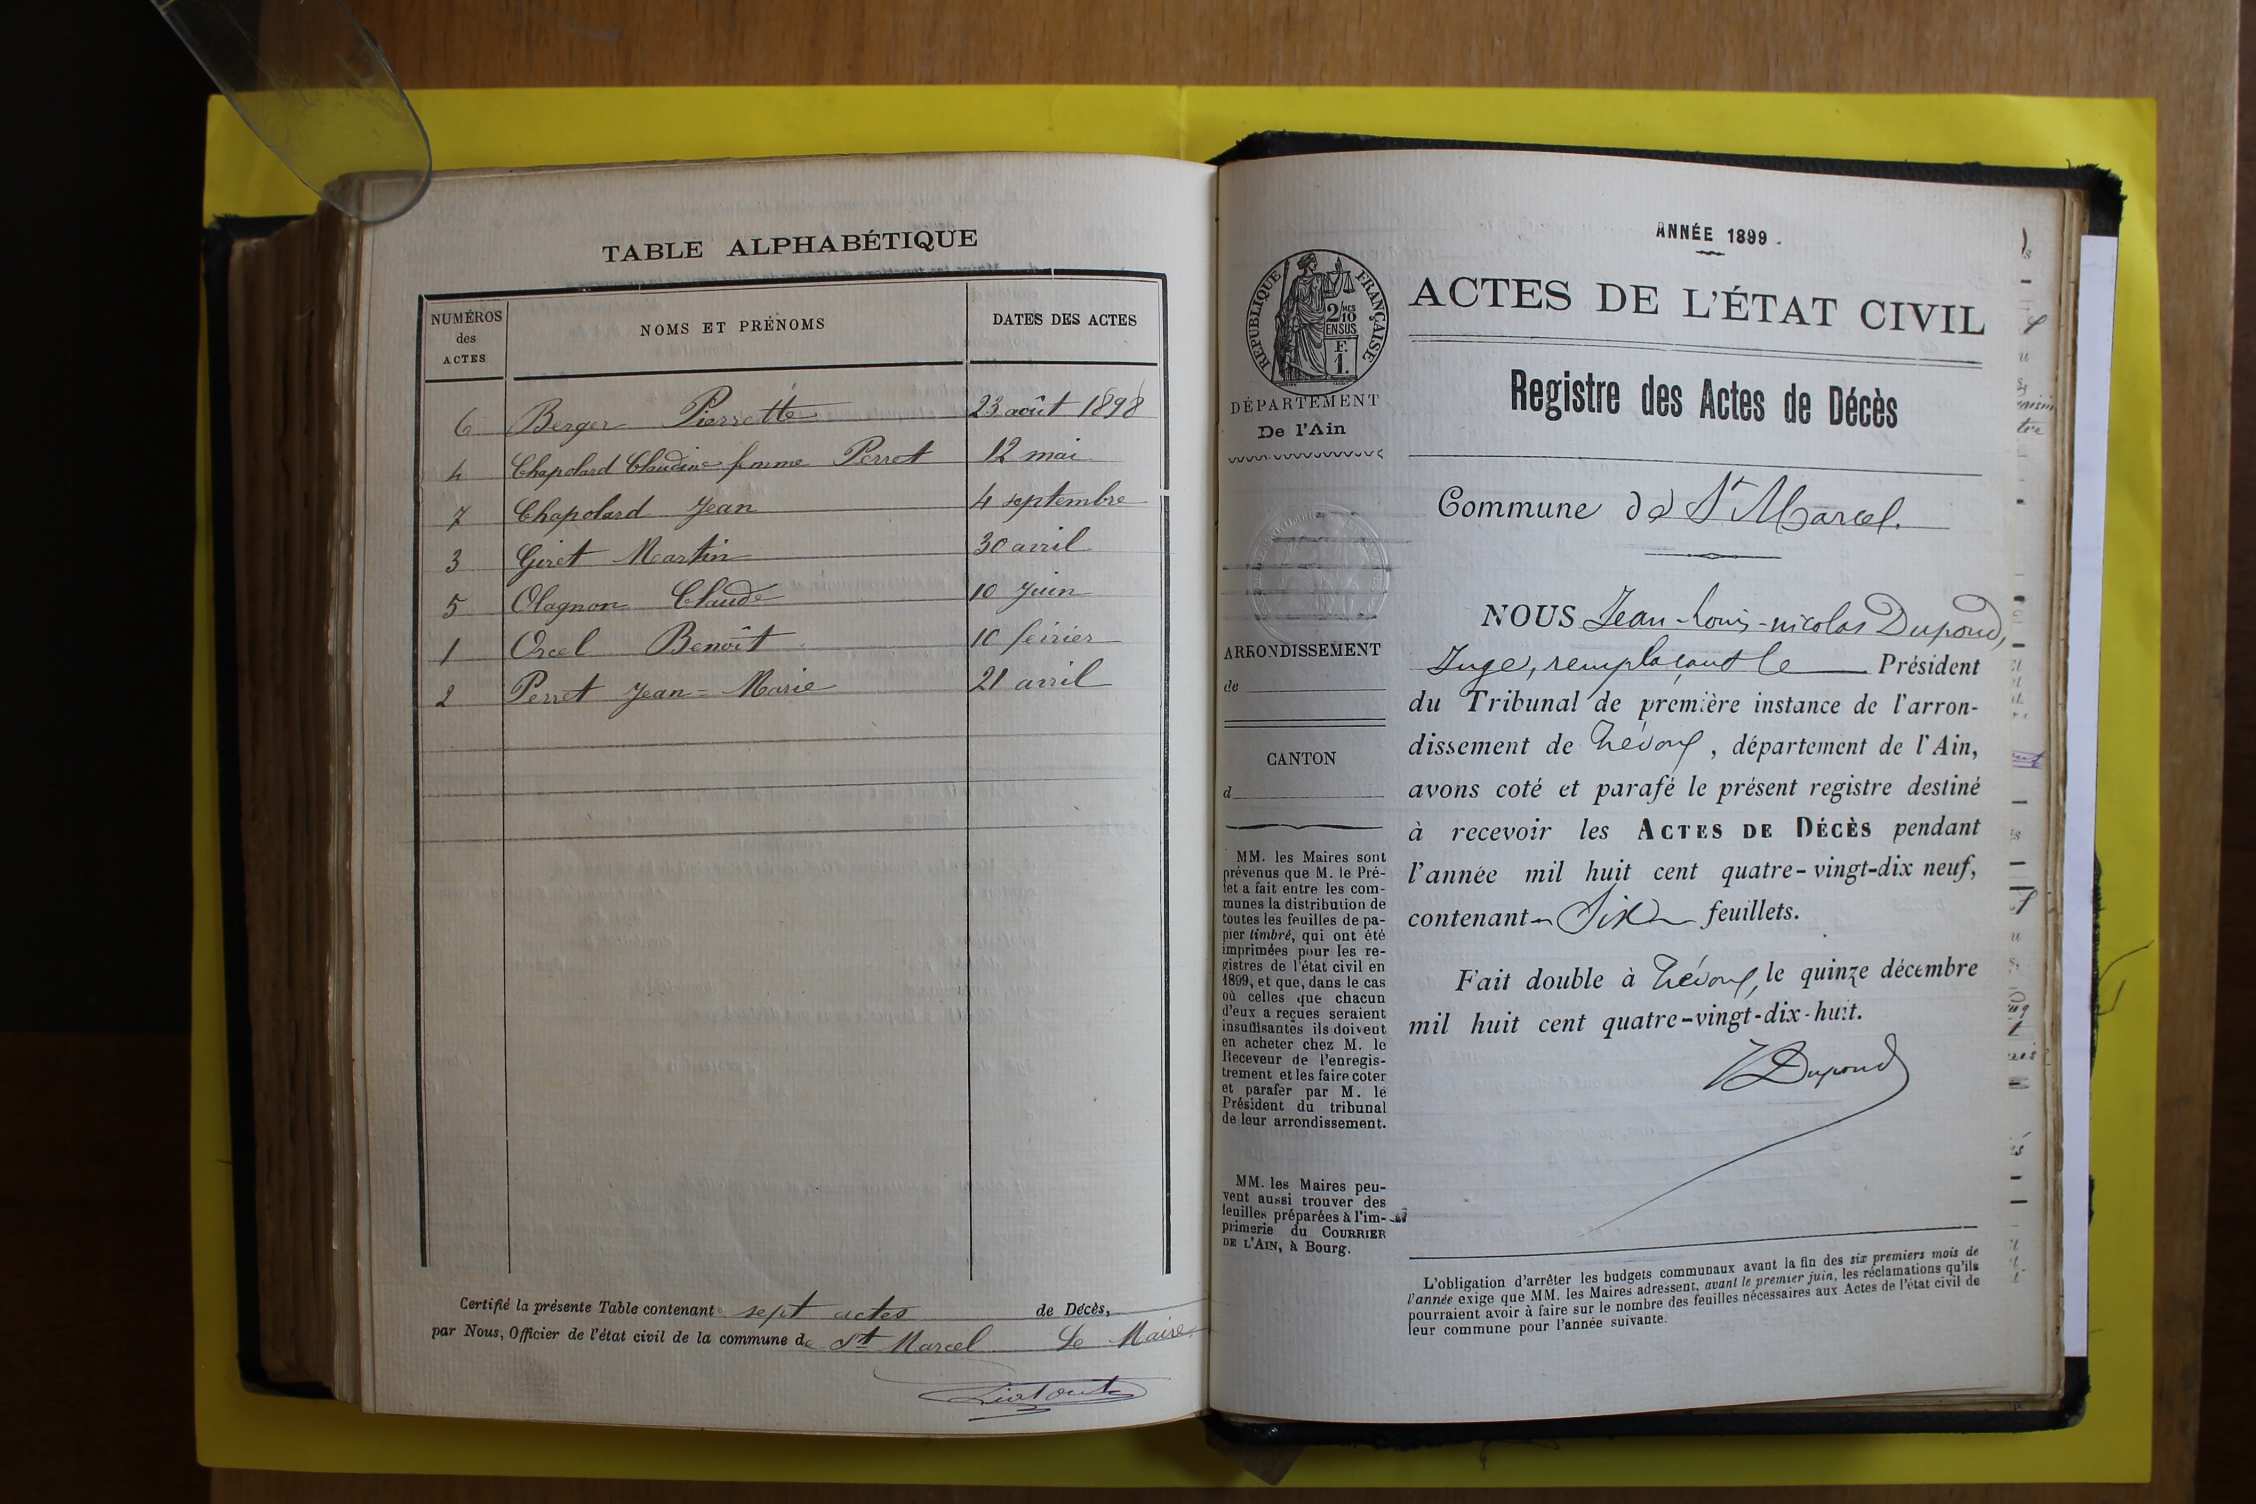 TABLE ALPHABÉTIQUE
NUMÉROS
des
ACTES
NOMS ET PRÉNOMS
DATES DES ACTES
6 Berger Pierrette 23 août 1898
4 Chapolard Claudine femme Perret 12 mai
7 Chapolard Jean 4 septembre
3 Giret Martin 30 avril
5 Olagnon Claude 10 Juin
1 Orcel Benoît 10 février
2 Perret Jean-Marie 21 avril
Certifié la présente Table contenant sept actes de Décès,
par Nous, Officier de l'état civil de la commune de St Marcel Le Maire
ANNÉE 1899.
RÉPUBLIQUE FRANÇAISE
2/10
EN SUS
F.
1.
DÉPARTEMENT
De l'Ain
ARRONDISSEMENT
de
CANTON
d
MM. les Maires sont
prévenus que M. le Pré-
fet a fait entre les com-
munes la distribution de
toutes les feuilles de pa-
pier timbré, qui ont été
imprimées pour les re-
gistres de l'état civil en
1899, et que, dans le cas
où celles que chacun
d'eux a reçues seraient
insuffisantes ils doivent
en acheter chez M. le
Receveur de l'enregis-
trement et les faire coter
et parafer par M. le
Président du tribunal
de leur arrondissement.
MM. les Maires peu-
vent aussi trouver des
feuilles préparées à l'im-
primerie du COURRIER
DE L'AIN, à Bourg.
ACTES DE L'ÉTAT CIVIL
Registre des Actes de Décès
Commune de St Marcel.
NOUS Jean-Louis-nicolas Dupond,
Juge, remplaçant le Président
du Tribunal de première instance de l'arron-
dissement de Trévoux, département de l'Ain,
avons coté et parafé le présent registre destiné
à recevoir les ACTES DE DÉCÈS pendant
l'année mil huit cent quatre-vingt-dix neuf,
contenant Six feuillets.
Fait double à Trévoux, le quinze décembre
mil huit cent quatre-vingt-dix-huit.
Dupond
L'obligation d'arrêter les budgets communaux avant la fin des six premiers mois de
l'année exige que MM. les Maires adressent, avant le premier juin, les réclamations qu'ils
pourraient avoir à faire sur le nombre des feuilles nécessaires aux Actes de l'état civil de
leur commune pour l'année suivante.